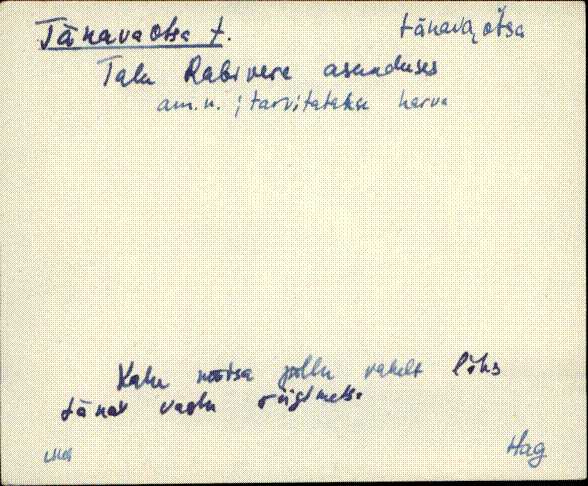 Tänavaotsa t. tänavaotsa
Talu Rabivere asunduses
am. n. ; tarvitatakse harva
Kahe põllu vahelt läks
tänav vastu riigimets.
Hag